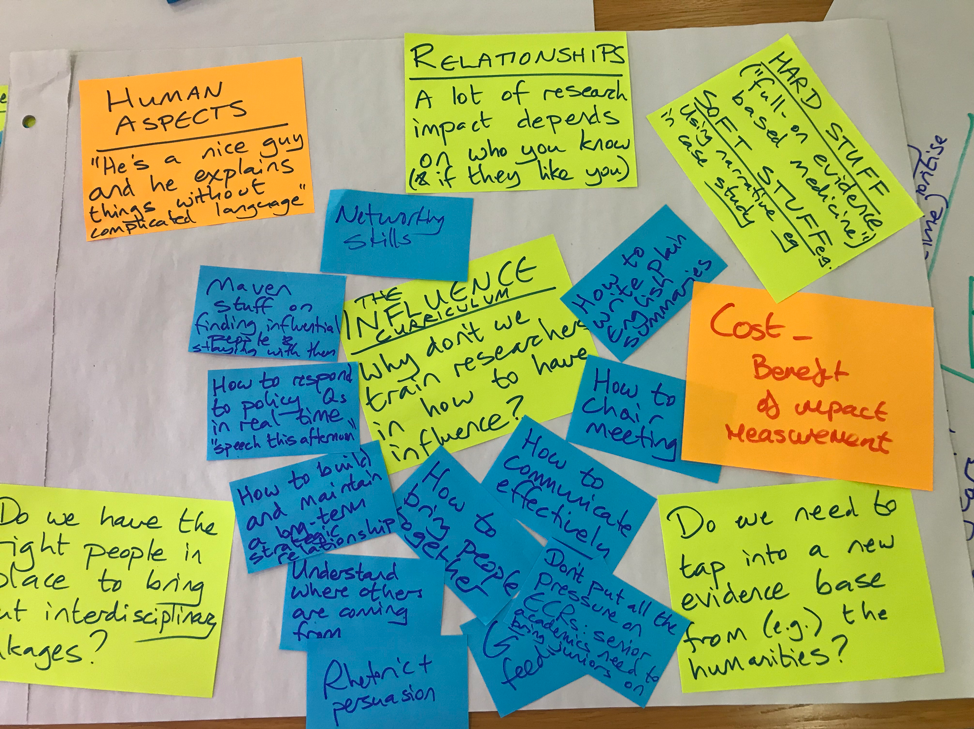 HUMAN
ASPECTS
"He's a nice guy
and he explains
things without
complicated language"
RELATIONSHIPS
A lot of research
impact depends
on who you know
(& if they like you)
HARD STUFF
("full-on evidence
based medicine")
SOFT STUFF eg.
Using narrative eg
in case study
Networking
Skills
Maven
stuff on
finding influential
people &
staying with them
THE
INFLUENCE
CURRICULUM
Why don't we
train researchers
in how to have
influence?
How to
write
English plain
summaries
Cost -
Benefit
of impact
Measurement
How to respond
to policy Qs
in real time
"speech this afternoon"
How to
chair
meeting
How to build
and maintain
a long-term
strategic
relationship
How to
bring people
together
How to
communicate
effectively
Do we have the
right people in
place to bring
interdisciplinary
Understand
where others
are coming
from
Don't put all the
pressure on
ECRs: senior
academics need to
bring juniors on
G
feed
Rhetoric +
persuasion
Do we need to
tap into a new
evidence base
from (e.g.) the
humanities?